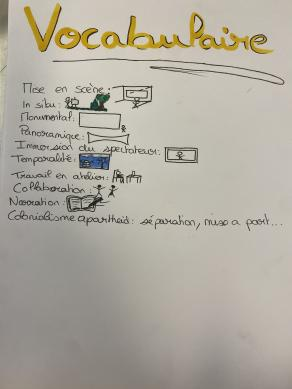 Vocabulaire
Mise en scène:
In situ:
Monumental:
Panoramique:
Immersion du spectateur:
Temporalité:
Travail en atelier:
Collaboration:
Narration:
Colonialisme apartheid: séparation, mise a part...